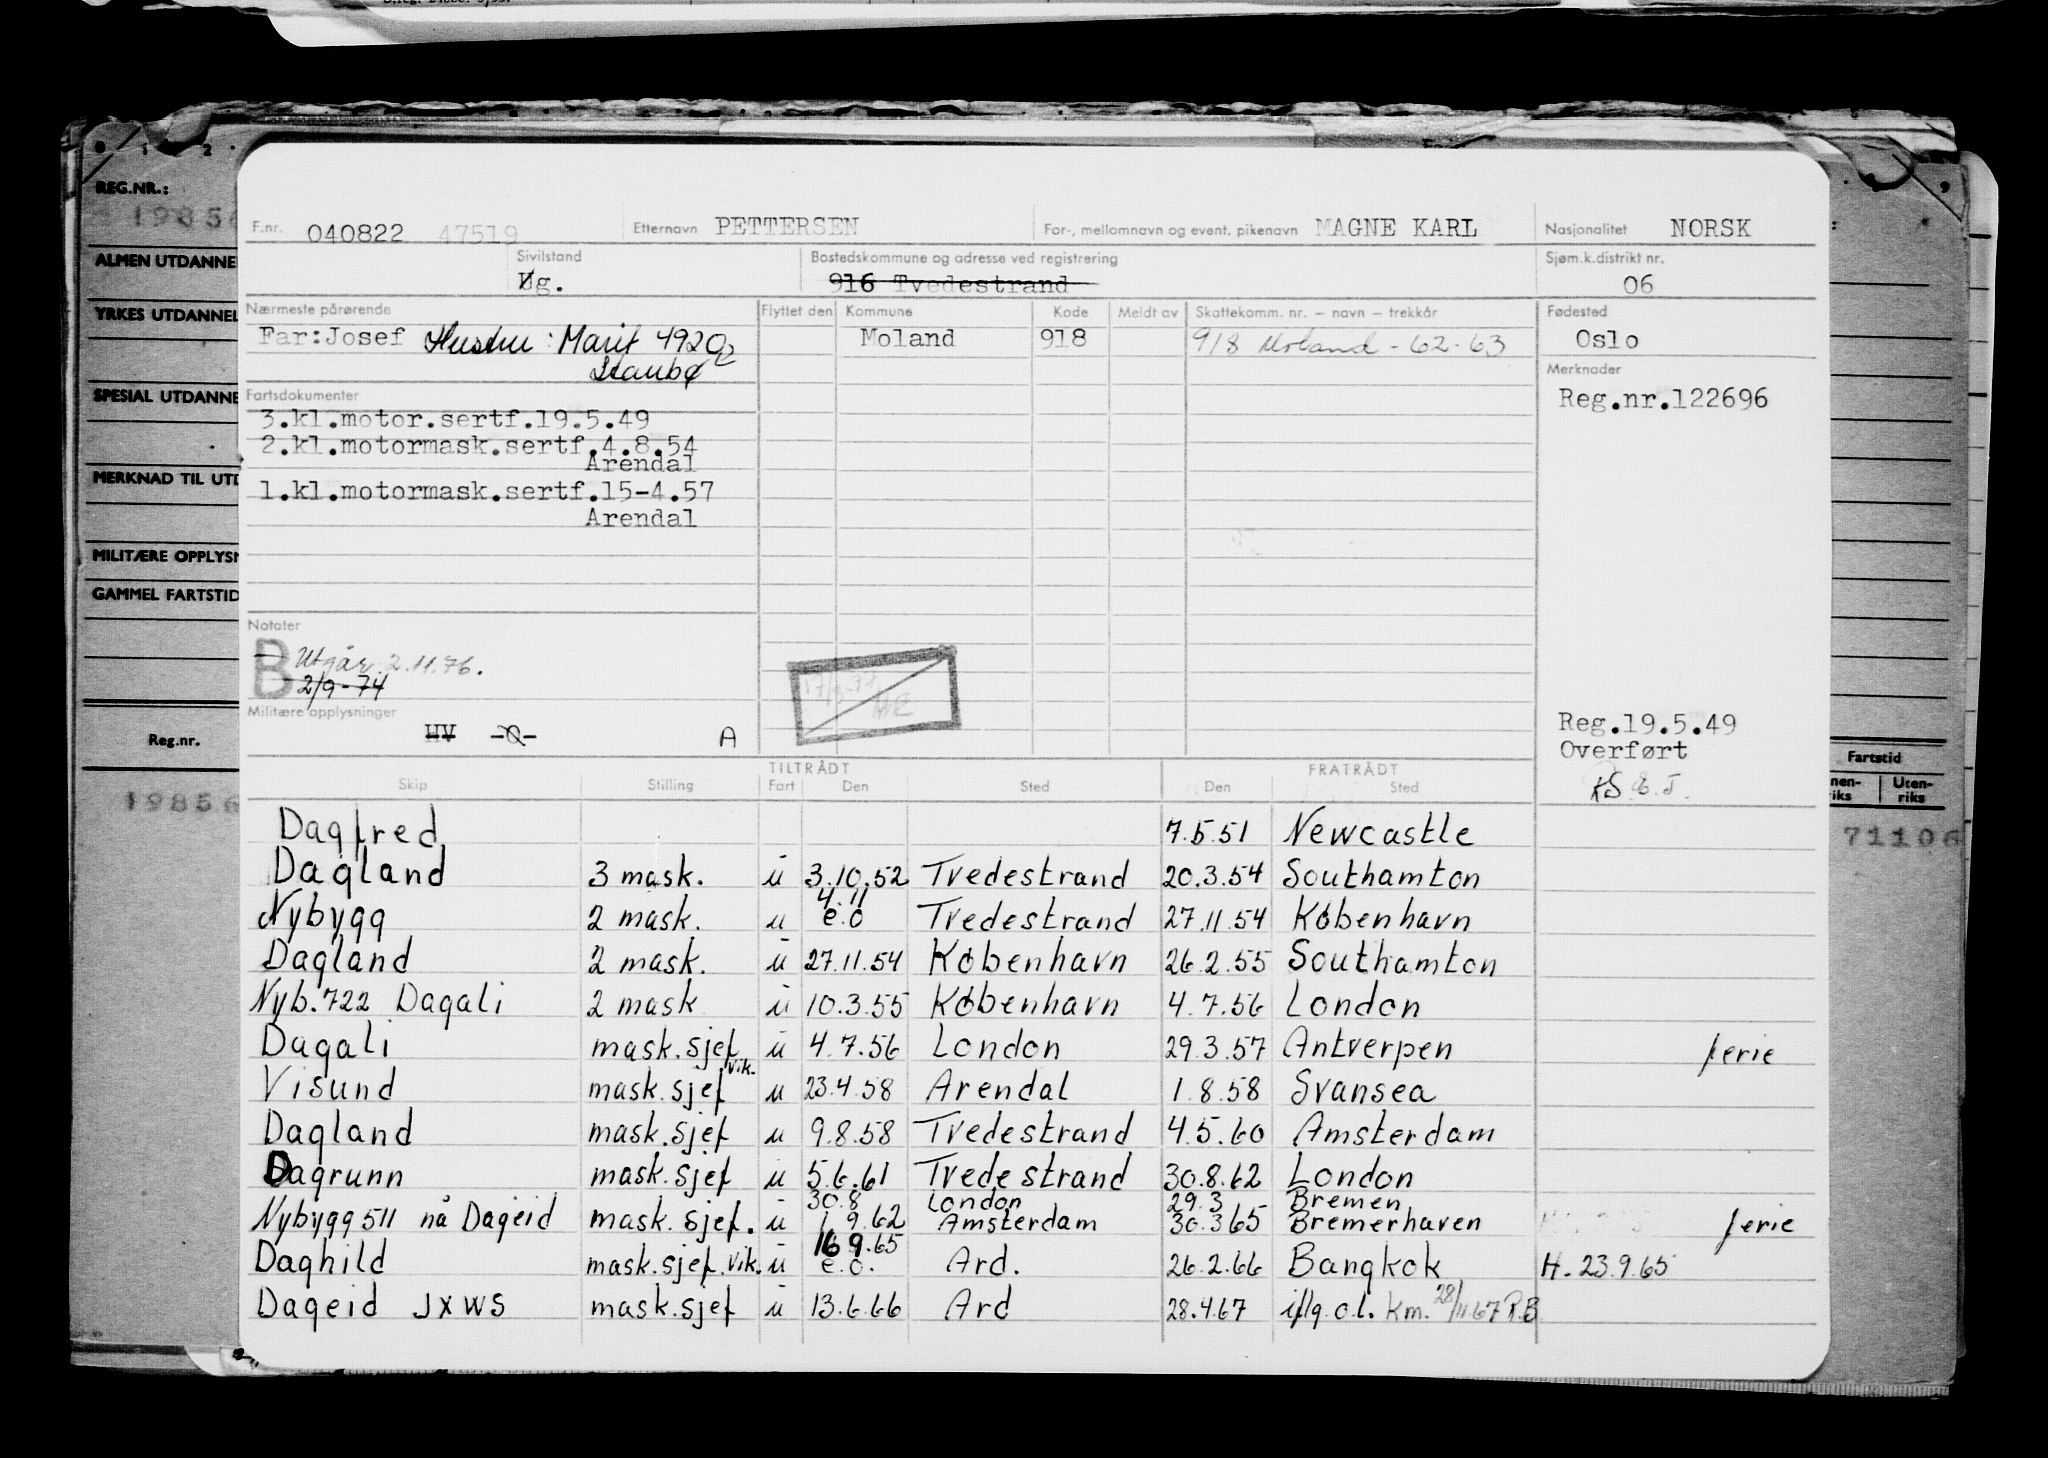 REG.NR.:
1985
ALMEN UTDANNE
YRKES UTDANNEL
SPESIAL UTDANNE
MERKNAD TIL UTD
MILITÆRE OPPLYSN
GAMMEL FARTSTID
Reg.nr.
19856
F.nr. 040822 47519 Etternavn PETTERSEN For-, mellomnavn og event. pikenavn MAGNE KARL Nasjonalitet NORSK
Sivilstand Bostedskommune og adresse ved registrering Sjøm.k.distrikt nr.
Ug. 916 Tvedestrand 06
Nærmeste pårørende Flyttet den Kommune Kode Meldt av Skattekomm. nr. – navn – trekkår Fødested
Far:Josef Hustru: Marit 4920 Moland 918 918 Moland - 62-63 Oslo
Staubø
Merknader
Fartsdokumenter Reg.nr.122696
3.kl.motor.sertf.19.5.49
2.kl.motormask.sertf.4.8.54
Arendal
1.kl.motormask.sertf.15-4.57
Arendal
Notater
B Utgår 2.11.76.
2/9-74
Militære opplysninger
HV A
Reg.19.5.49
Overført
TILTRÅDT FRATRÅDT
Skip Stilling Fart Den Sted Den Sted
Dagfred 7.5.51 Newcastle
Dagland 3 mask. u 3.10.52 Tvedestrand 20.3.54 Southamton
4.11
Nybygg 2 mask. u e.o Tvedestrand 27.11.54 København
Dagland 2 mask. u 27.11.54 København 26.2.55 Southamton
Nyb.722 Dagali 2 mask u 10.3.55 København 4.7.56 London
Dagali mask.sjef u 4.7.56 London 29.3.57 Antverpen ferie
vik.
Visund mask.sjef u 23.4.58 Arendal 1.8.58 Svansea
Dagland mask.sjef u 9.8.58 Tvedestrand 4.5.60 Amsterdam
Dagrunn mask.sjef u 5.6.61 Tvedestrand 30.8.62 London
30.8 London 29.3 Bremen
Nybygg 511 nå Dageid mask.sjef. u 1.9.62 Amsterdam 30.3.65 Bremerhaven ferie
16.9.65
Daghild mask.sjef.vik. u e.o. Ard. 26.2.66 Bangkok H. 23.9.65
Dageid JXWS mask.sjef u 13.6.66 Ard 28.4.67 iflg. o.l. Km. 28/11 67 R.B
Fartstid
Uten-
riks
71106